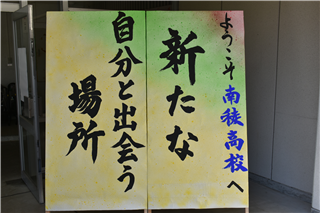 ようこそ南稜高校へ
新たな
自分と出会う
場所